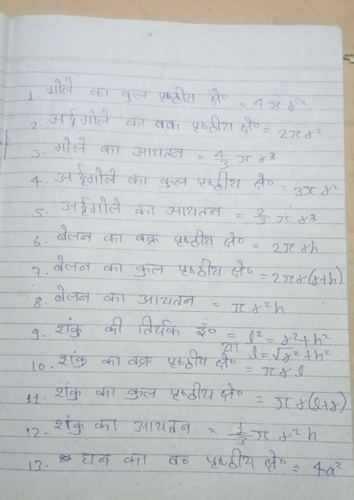 1. गोले का कुल पृष्ठीय क्षे॰ = 4πr²
2. अर्द्धगोले का वक्र पृष्ठीय क्षे॰ = 2πr²
3. गोले का आयतन = 4/3 πr³
4. अर्द्धगोले का कुल पृष्ठीय क्षे॰ = 3πr²
5. अर्द्धगोले का आयतन = 2/3 πr³
6. बेलन का वक्र पृष्ठीय क्षे॰ = 2πrh
7. बेलन का कुल पृष्ठीय क्षे॰ = 2πr(r+h)
8. बेलन का आयतन = πr²h
9. शंकु की तिर्यक ऊं॰ = l² = r²+h²
या l = √r²+h²
10. शंकु का वक्र पृष्ठीय क्षे॰ = πrl
11. शंकु का कुल पृष्ठीय क्षे॰ = πr(l+r)
12. शंकु का आयतन = 1/3 πr²h
13. घन का व॰ पृष्ठीय क्षे॰ = 4a²